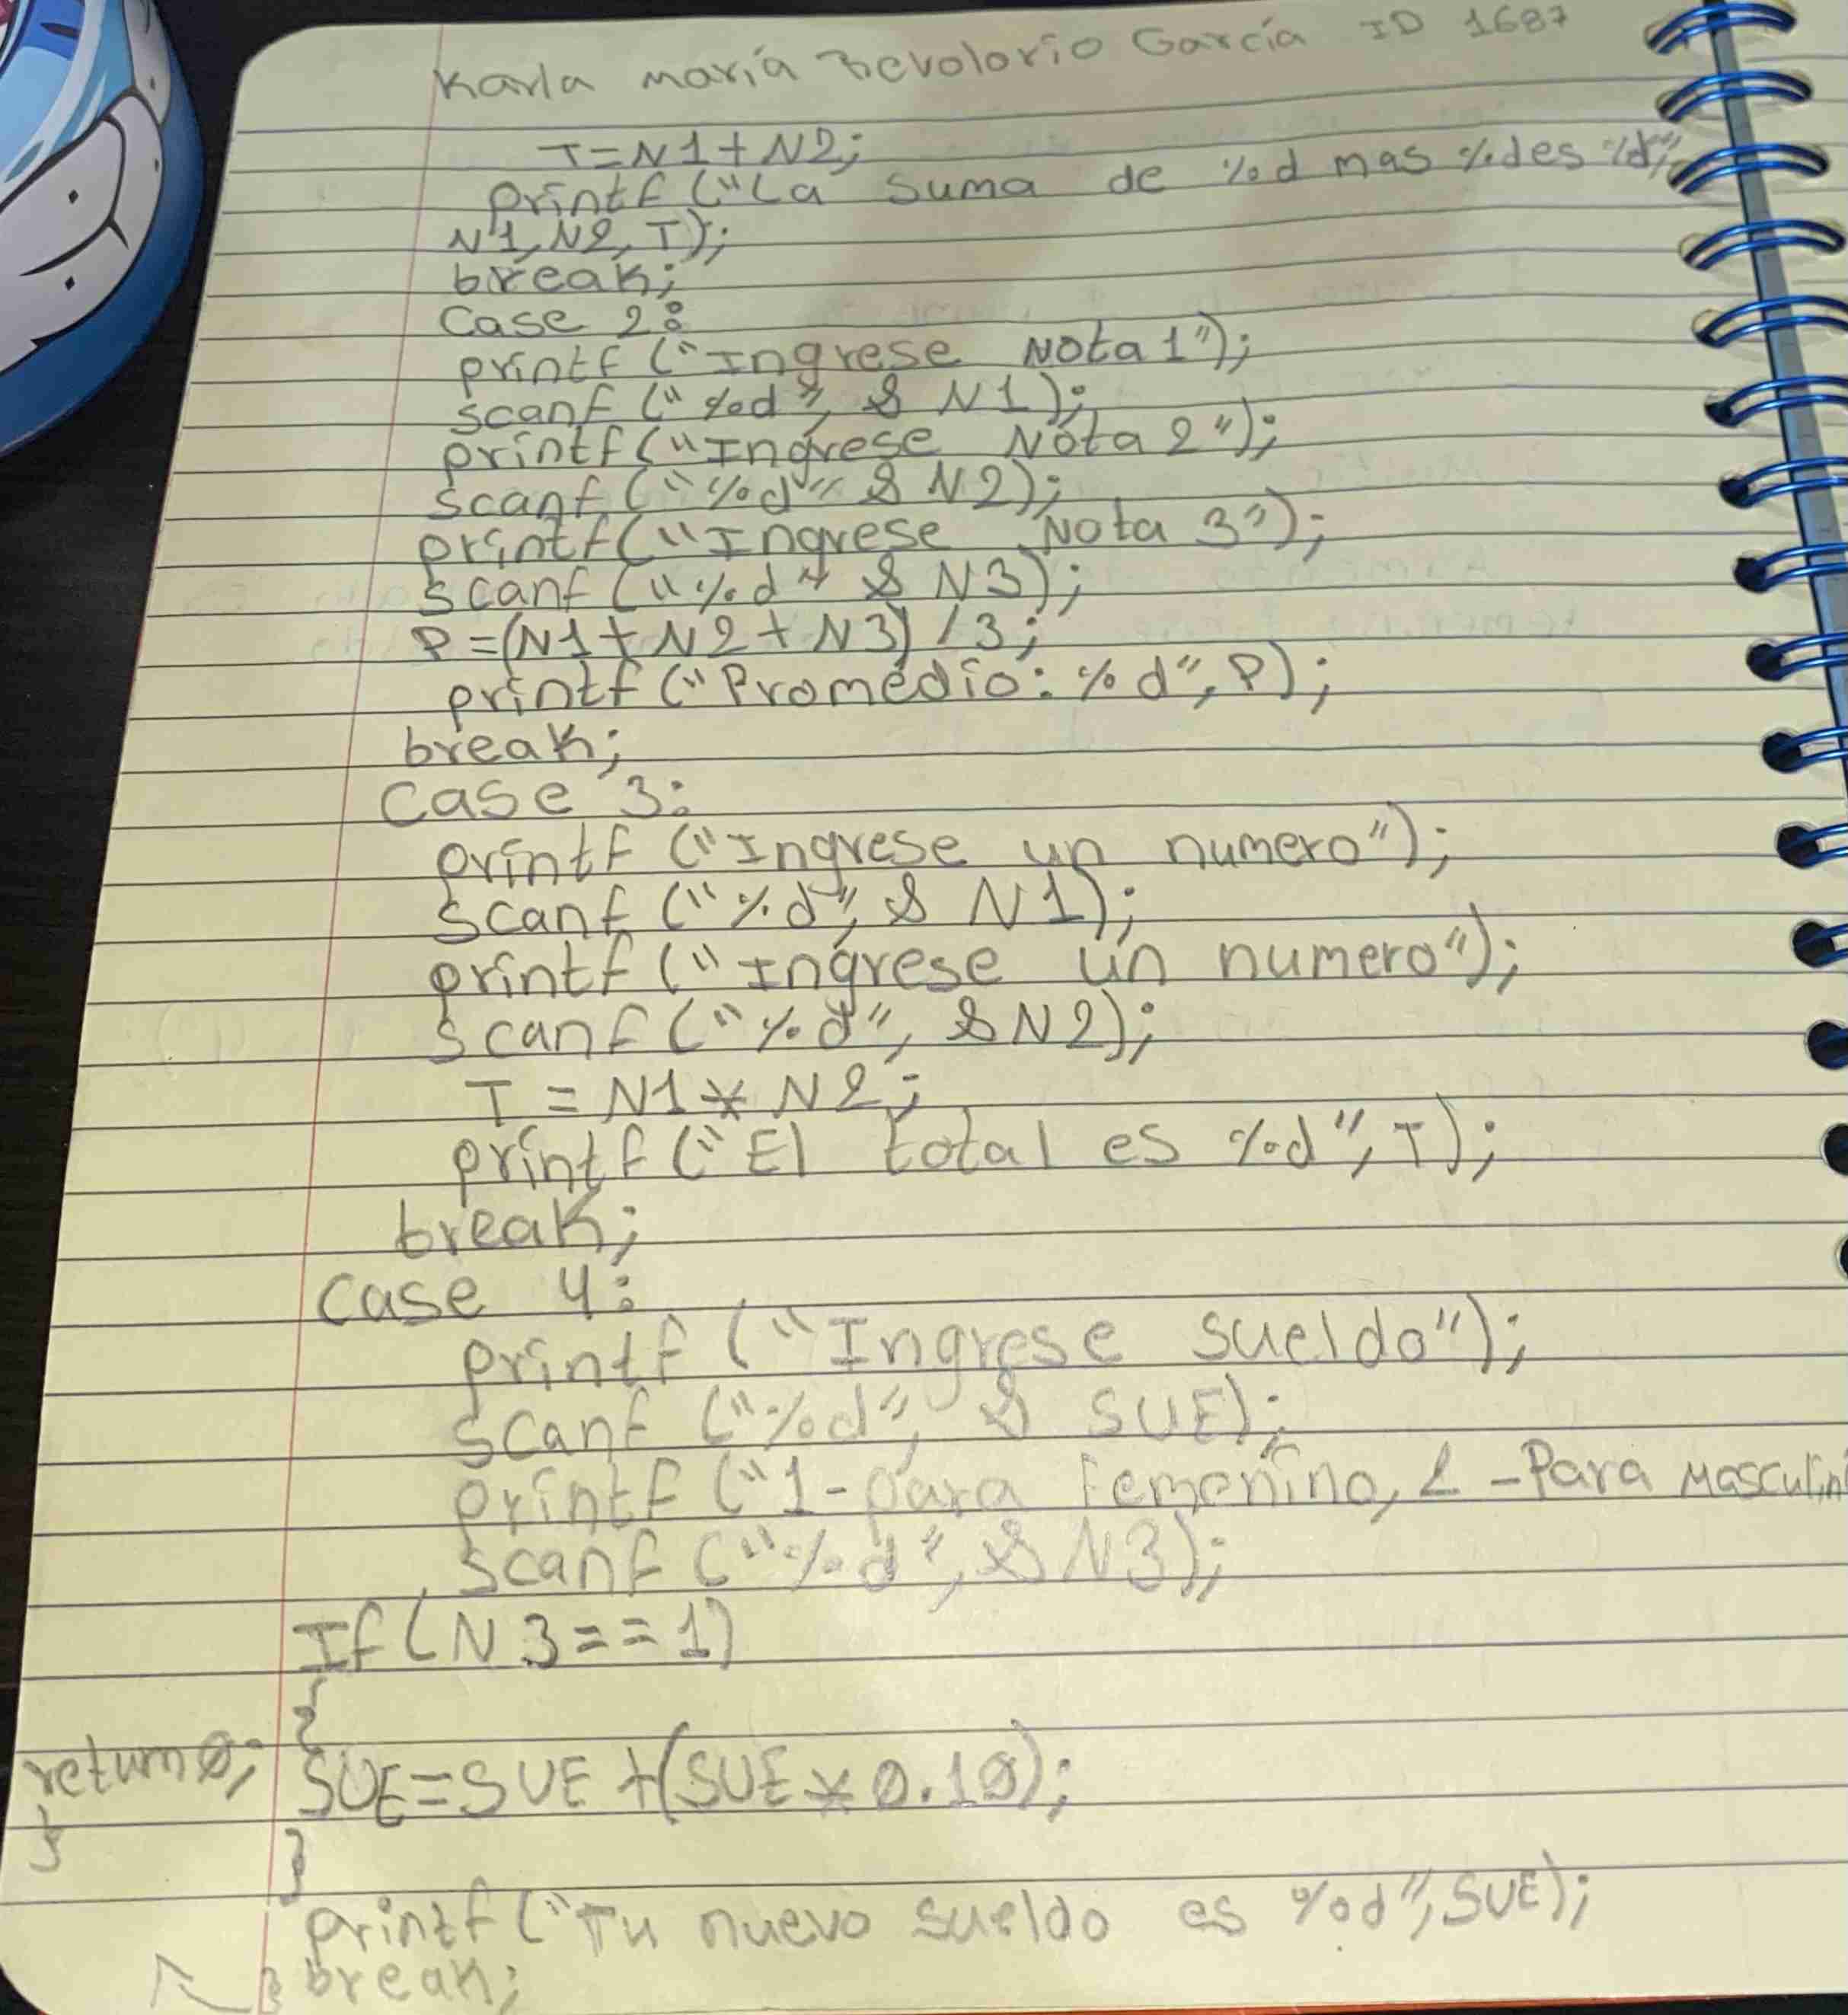 Karla maría Revolorio García ID 1687
T=N1+N2;
printf ("La suma de %d mas %des %d",
N1,N2,T);
break;
Case 2:
printf ("Ingrese Nota1");
scanf ("%d", & N1);
printf("Ingrese Nota2");
scanf ("%d" & N2);
printf("Ingrese Nota 3");
scanf ("%d" & N3);
P=(N1+N2+N3)/3;
printf ("Promedio: %d", P);
break;
Case 3:
printf ("Ingrese un numero");
scanf ("%d", & N1);
printf ("Ingrese un numero");
scanf ("%d", &N2);
T = N1 * N2;
printf ("El total es %d", T);
break;
Case 4:
printf ("Ingrese sueldo");
scanf ("%d", & SUE);
printf ("1-para Femenino, 2 -Para Masculin
scanf ("%d", &N3);
If(N3==1)
{
SUE=SUE+(SUE*0.10);
}
printf ("Tu nuevo sueldo es %d", SUE);
break;
}
return0;
}